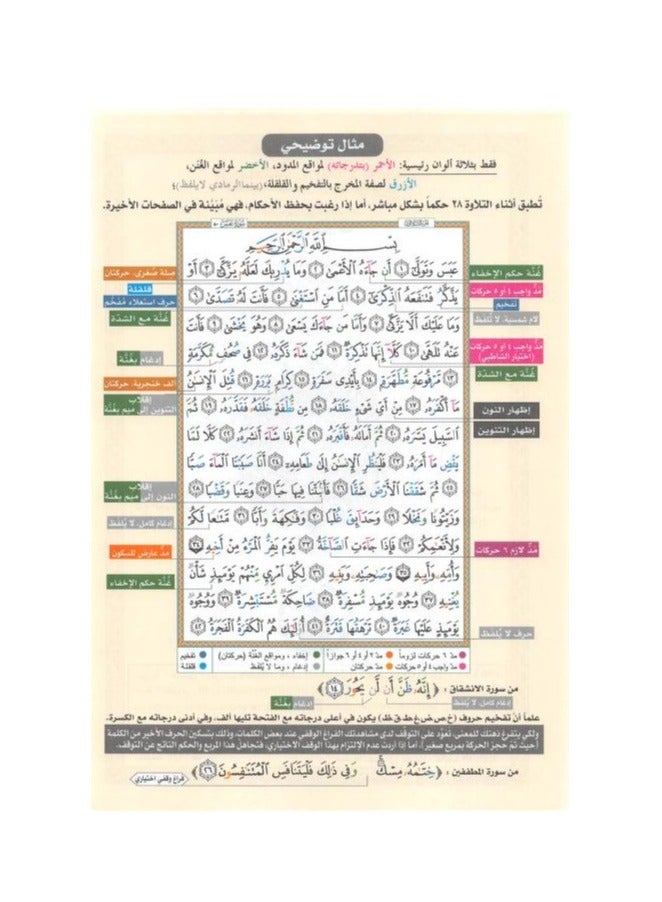 مثال توضيحي
فقط بثلاثة ألوان رئيسية: الأحمر (بتدرجاته) لمواقع المدود، الأخضر لمواقع الغُنَن،
الأزرق لصفة المخرج بالتفخيم والقلقلة؛ (بينما الرمادي لا يلفظ)؛
تُطبق أثناء التلاوة ٢٨ حكماً بشكل مباشر، أما إذا رغبت بحفظ الأحكام، فهي مُبيّنة في الصفحات الأخيرة.
بِسْمِ اللَّهِ الرَّحْمَٰنِ الرَّحِيمِ
عَبَسَ وَتَوَلَّىٰٓ ١ أَن جَآءَهُ ٱلْأَعْمَىٰ ٢ وَمَا يُدْرِيكَ لَعَلَّهُۥ يَزَّكَّىٰٓ ٣ أَوْ
يَذَّكَّرُ فَتَنفَعَهُ ٱلذِّكْرَىٰٓ ٤ أَمَّا مَنِ ٱسْتَغْنَىٰ ٥ فَأَنتَ لَهُۥ تَصَدَّىٰ ٦
وَمَا عَلَيْكَ أَلَّا يَزَّكَّىٰ ٧ وَأَمَّا مَن جَآءَكَ يَسْعَىٰ ٨ وَهُوَ يَخْشَىٰ ٩ فَأَنتَ
عَنْهُ تَلَهَّىٰ ١٠ كَلَّآ إِنَّهَا تَذْكِرَةٌ ١١ فَمَن شَآءَ ذَكَرَهُۥ ١٢ فِى صُحُفٍ مُّكَرَّمَةٍ
١٣ مَّرْفُوعَةٍ مُّطَهَّرَةٍۭ ١٤ بِأَيْدِى سَفَرَةٍ ١٥ كِرَامٍۭ بَرَرَةٍ ١٦ قُتِلَ ٱلْإِنسَٰنُ
مَآ أَكْفَرَهُۥ ١٧ مِنْ أَىِّ شَىْءٍ خَلَقَهُۥ ١٨ مِن نُّطْفَةٍ خَلَقَهُۥ فَقَدَّرَهُۥ ١٩ ثُمَّ
ٱلسَّبِيلَ يَسَّرَهُۥ ٢٠ ثُمَّ أَمَاتَهُۥ فَأَقْبَرَهُۥ ٢١ ثُمَّ إِذَا شَآءَ أَنشَرَهُۥ ٢٢ كَلَّا لَمَّا
يَقْضِ مَآ أَمَرَهُۥ ٢٣ فَلْيَنظُرِ ٱلْإِنسَٰنُ إِلَىٰ طَعَامِهِۦٓ ٢٤ أَنَّا صَبَبْنَا ٱلْمَآءَ صَبًّا
٢٥ ثُمَّ شَقَقْنَا ٱلْأَرْضَ شَقًّا ٢٦ فَأَنۢبَتْنَا فِيهَا حَبًّا ٢٧ وَعِنَبًا وَقَضْبًا ٢٨
وَزَيْتُونًا وَنَخْلًا ٢٩ وَحَدَآئِقَ غُلْبًا ٣٠ وَفَٰكِهَةً وَأَبًّا ٣١ مَّتَٰعًا لَّكُمْ
وَلِأَنْعَٰمِكُمْ ٣٢ فَإِذَا جَآءَتِ ٱلصَّآخَّةُ ٣٣ يَوْمَ يَفِرُّ ٱلْمَرْءُ مِنْ أَخِيهِ ٣٤
وَأُمِّهِۦ وَأَبِيهِ ٣٥ وَصَٰحِبَتِهِۦ وَبَنِيهِ ٣٦ لِكُلِّ ٱمْرِئٍ مِّنْهُمْ يَوْمَئِذٍ شَأْنٌ
يُغْنِيهِ ٣٧ وُجُوهٌ يَوْمَئِذٍ مُّسْفِرَةٌ ٣٨ ضَاحِكَةٌ مُّسْتَبْشِرَةٌ ٣٩ وَوُجُوهٌ
يَوْمَئِذٍ عَلَيْهَا غَبَرَةٌ ٤٠ تَرْهَقُهَا قَتَرَةٌ ٤١ أُو۟لَٰٓئِكَ هُمُ ٱلْكَفَرَةُ ٱلْفَجَرَةُ ٤٢
غُنّة حكم الإخفاء
مدّ واجب ٤ أو ٥ حركات
تفخيم
لام شمسية، لا تلفظ
مدّ واجب ٤ أو ٥ حركات
(اختيار الشاطبي)
غُنّة مع الشدّة
إظهار النون
إظهار التنوين
مدّ لازم ٦ حركات
حرف لا يُلفظ
صلة صُغرى، حركتان
قلقلة
حرف استعلاء مُفخّم
غُنّة مع الشدّة
إدغام بغُنّة
ألف خنجرية، حركتان
إقلاب
التنوين إلى ميم بغُنّة
إقلاب
النون إلى ميم بغُنّة
إدغام كامل، لا يُلفظ
مدّ عارض للسكون
غُنّة حكم الإخفاء
مدّ ٦ حركات لزوماً مدّ ٢ أو ٤ أو ٦ جوازاً إخفاء، ومواقع الغُنّة (حركتان) تفخيم
مدّ واجب ٤ أو ٥ حركات مدّ حركتان إدغام، وما لا يُلفظ قلقلة
من سورة الانشقاق: ﴿إِنَّهُۥ ظَنَّ أَن لَّن يَحُورَ ١٤﴾
إدغام كامل، لا يُلفظ
إدغام بغُنّة
علماً أنّ تفخيم حروف (خ.ص.ض.غ.ط.ق.ظ) يكون في أعلى درجاته مع الفتحة تليها ألف، وفي أدنى درجاته مع الكسرة.
ولكي يتفرغ ذهنك للمعنى، تَعوّد على التوقف لدى مشاهدتك الفراغ الوقفي عند بعض الكلمات، وذلك بتسكين الحرف الأخير من الكلمة
(حيث تم حجز الحركة بمربع صغير)، أما إذا أردت عدم الالتزام بهذا الوقف الاختياري، فتجاهل هذا المربع والحكم الناتج عن التوقف.
من سورة المطففين: ﴿خِتَٰمُهُۥ مِسْكٌ وَفِى ذَٰلِكَ فَلْيَتَنَافَسِ ٱلْمُتَنَٰفِسُونَ ٢٦﴾
فراغ وقفي اختياري